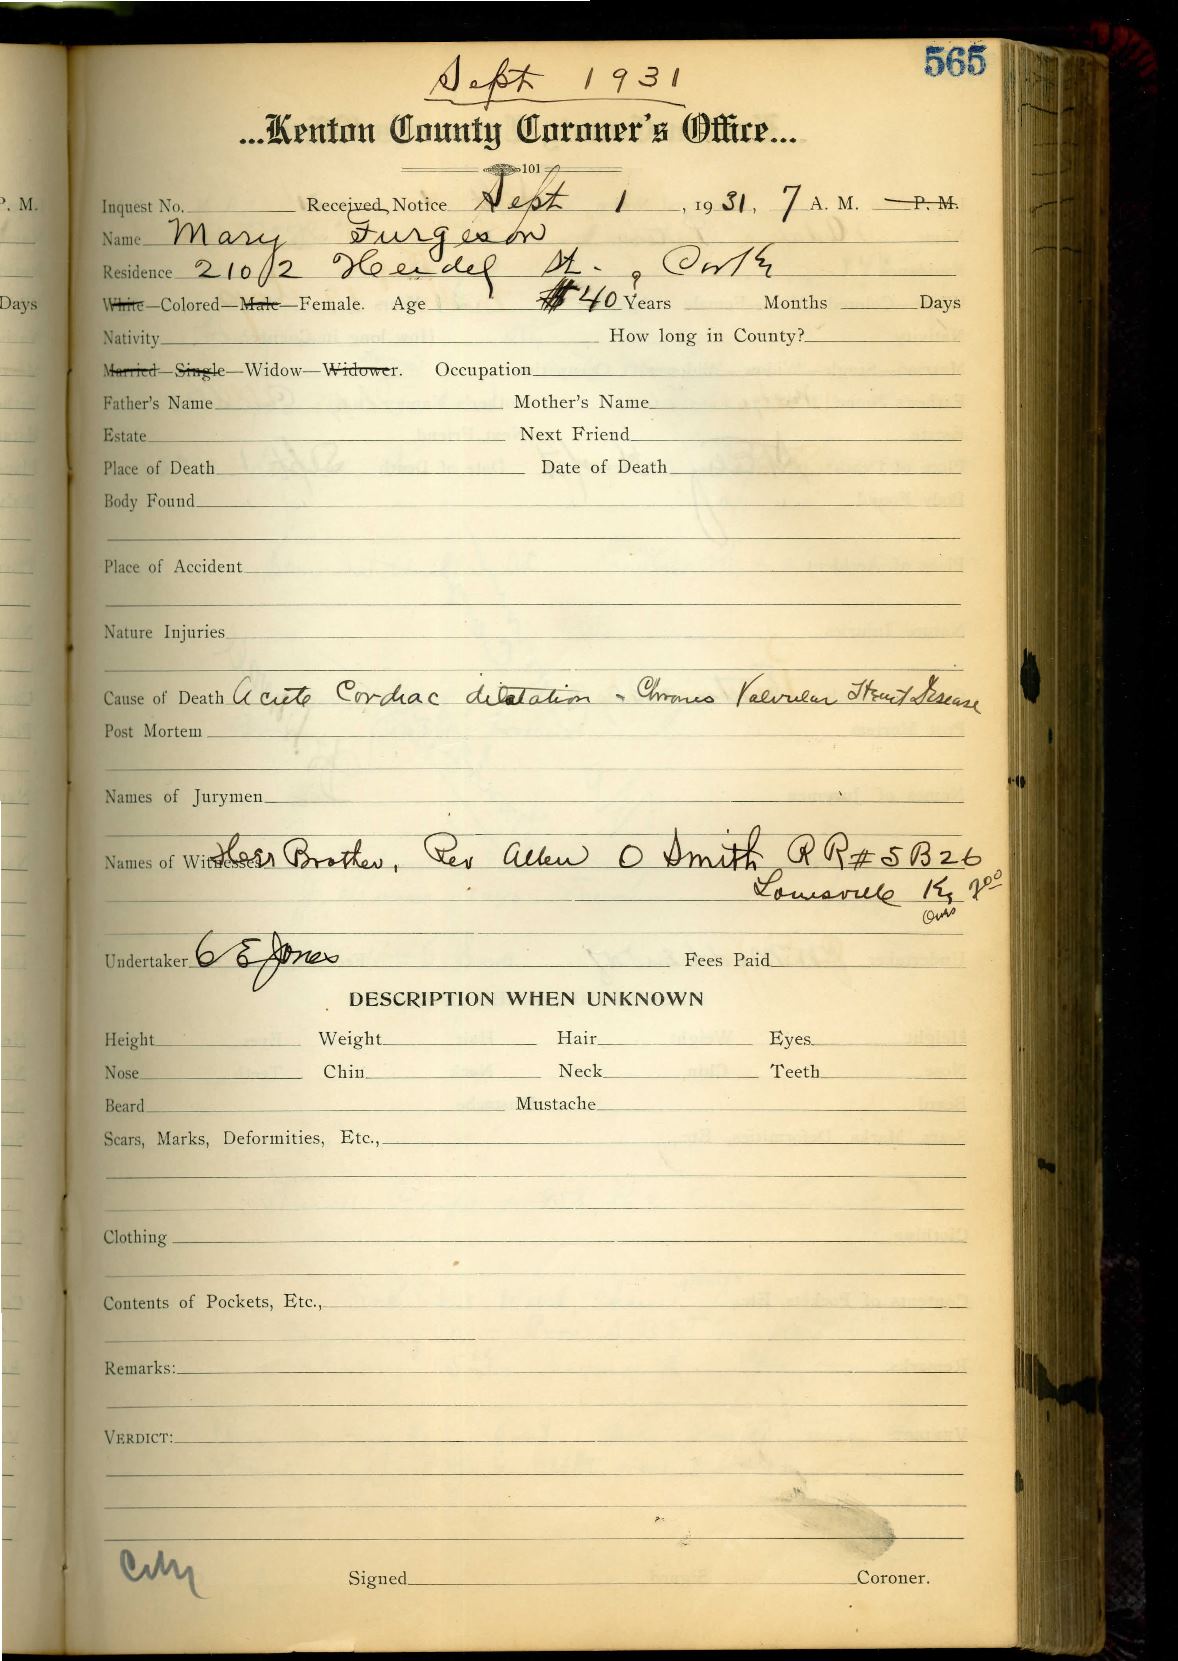 565
Sept 1931
...Kenton County Coroner's Office...
101
Inquest No. Received Notice Sept 1, 1931, 7 A. M. P. M.
P. M.
Name Mary Furgeson
Residence 210 1/2 St.
White—Colored—Male—Female. Age 40 Years Months Days
Days
Nativity How long in County?
Married—Single—Widow—Widower. Occupation
Father's Name Mother's Name
Estate Next Friend
Place of Death Date of Death
Body Found
Place of Accident
Nature Injuries
Cause of Death Acute Cardiac dilatation - Chronic Valvular Heart Disease
Post Mortem
Names of Jurymen
Names of Witnesses Her Brother, Rev Allen O Smith RR#5 B26
Louisville Ky
Undertaker C E Jones Fees Paid
DESCRIPTION WHEN UNKNOWN
Height Weight Hair Eyes
Nose Chin Neck Teeth
Beard Mustache
Scars, Marks, Deformities, Etc.,
Clothing
Contents of Pockets, Etc.,
Remarks:
VERDICT:
City
Signed Coroner.